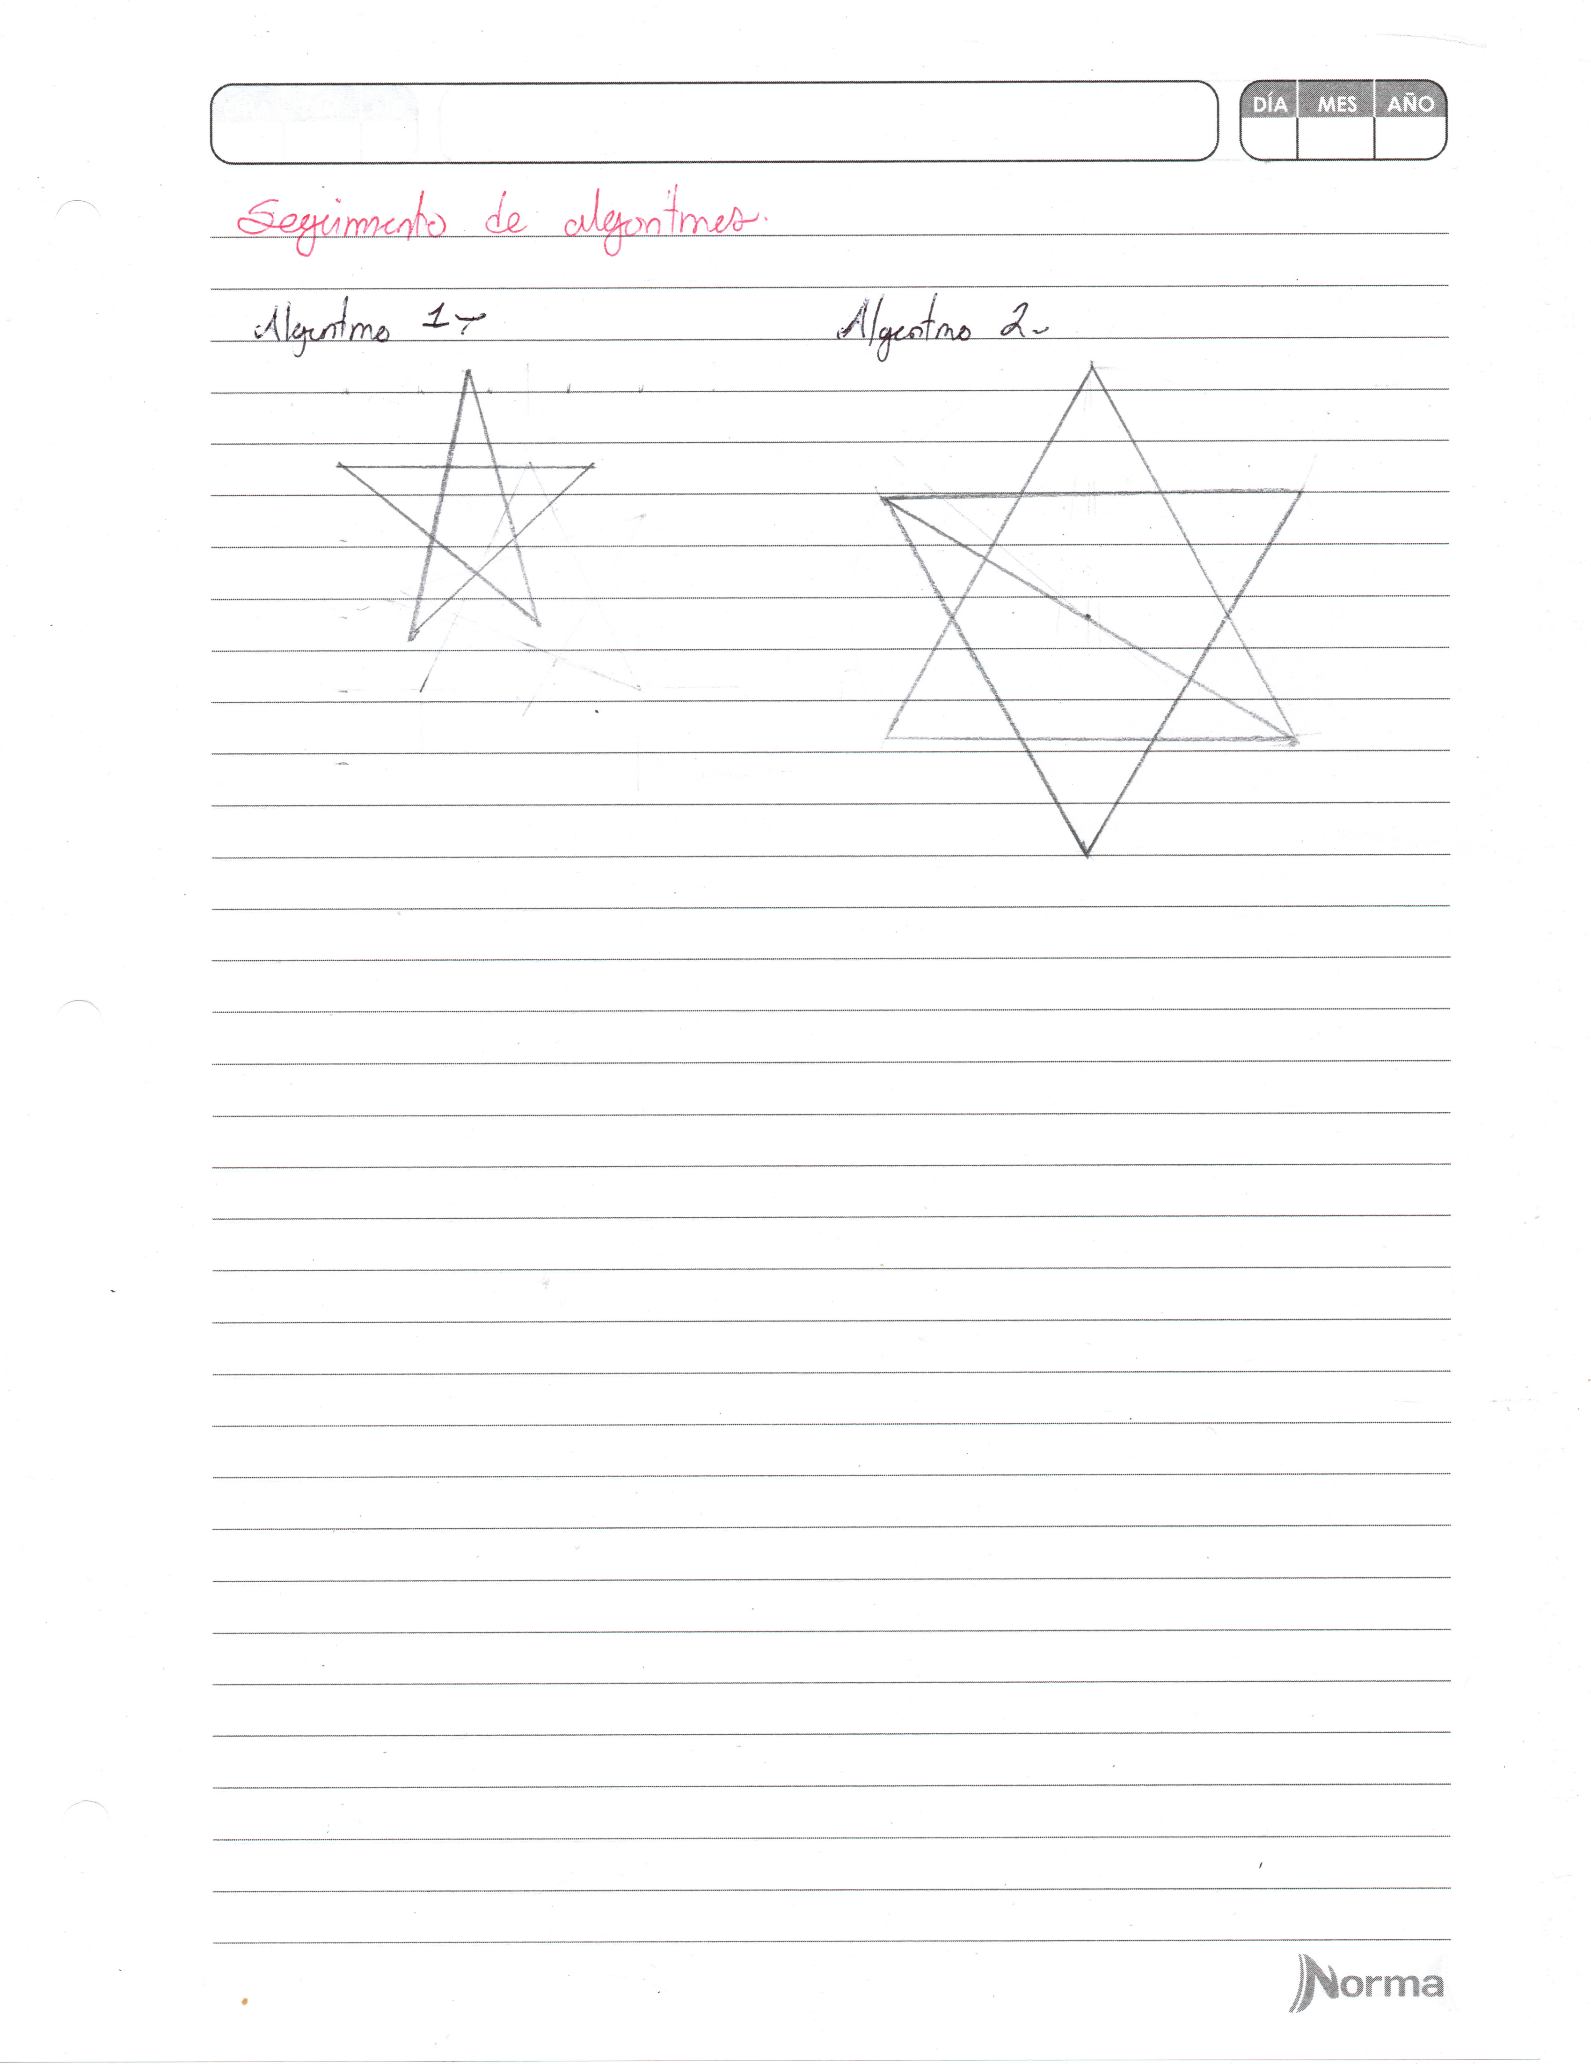 DÍA MES AÑO
Seguimiento de algoritmos.
Algoritmo 1-
Algoritmo 2-
Norma